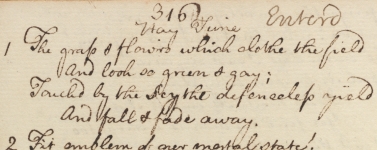 316
May June Enterd
1 The grass & flowrs which clothe the field
And look so green & gay;
Touchd by the Scythe defenceless yield
And fall & fade away.
2 Fit emblem of our mortal state!